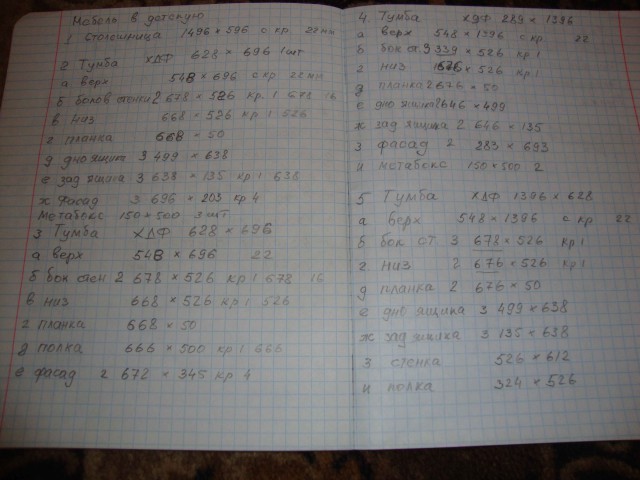 Мебель в детскую
1 столешница 1496 × 596 с кр. 22 мм
2 Тумба ХДФ 628 × 696 1 шт
а верх 548 × 696 с кр 22 мм
б боков стенки 2 678 × 526 кр. 1 678 16
в низ 668 × 526 кр 1 526
г планка 668 × 50
д дно ящика 3 499 × 638
е зад ящика 3 638 × 135 кр 1 638
ж фасад 3 696 × 203 кр 4
метабокс 150 × 500 3 шт
3 Тумба ХДФ 628 × 696
а верх 548 × 696 22
б бок стен 2 678 × 526 кр 1 678 16
в низ 668 × 526 кр 1 526
г планка 668 × 50
д полка 666 × 500 кр 1 666
е фасад 2 672 × 345 кр 4
4. Тумба ХДФ 289 × 1396
а верх 548 × 1396 с кр 22
б бок от 3 339 × 526 кр 1
г низ 676 × 526 кр 1
д планка 2 676 × 50
е дно ящика 2 646 × 499
ж зад ящика 2 646 × 135
з фасад 2 283 × 693
и метабокс 150 × 500 2
5 Тумба ХДФ 1396 × 628
а верх 548 × 1396 с кр 22
б бок ст. 3 678 × 526 кр 1
г. низ 2 676 × 526 кр 1
д планка 2 676 × 50
е дно ящика 3 499 × 638
ж зад ящика 3 135 × 638
з стенка 526 × 612
и полка 324 × 526